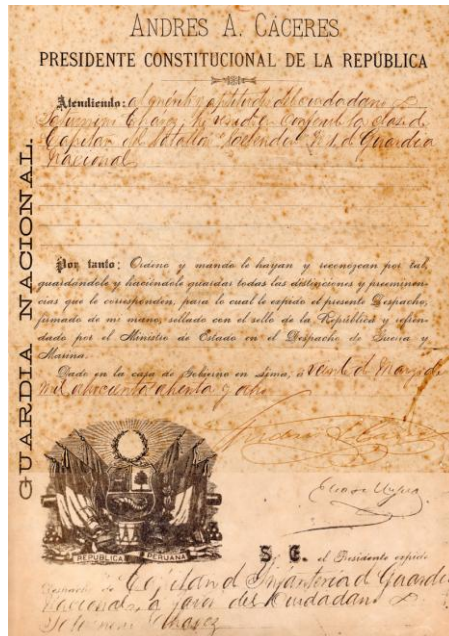 ANDRES A. CÁCERES
PRESIDENTE CONSTITUCIONAL DE LA REPÚBLICA
Atendiendo: al mérito y aptitudes del ciudadano
Chavez, he venido en la clase de
Capitan del Batallon de Guardia
Nacional
Por tanto; Ordeno y mando le hayan y reconozcan por tal,
guardándole y haciéndole guardar todas las distinciones y preeminen-
cias que le corresponden, para lo cual le expido el presente Despacho,
firmado de mi mano, sellado con el sello de la República y refren-
dado por el Ministro de Estado en el Despacho de Guerra y
Marina.
Dado en la casa de Gobierno en Lima, á veinte de Marzo de
mil ochocientos ochenta y ocho
GUARDIA NACIONAL.
REPUBLICA PERUANA
S. E. el Presidente expide
Despacho de Capitan de Infanteria de Guardia
Nacional, a favor del Ciudadano
Chavez